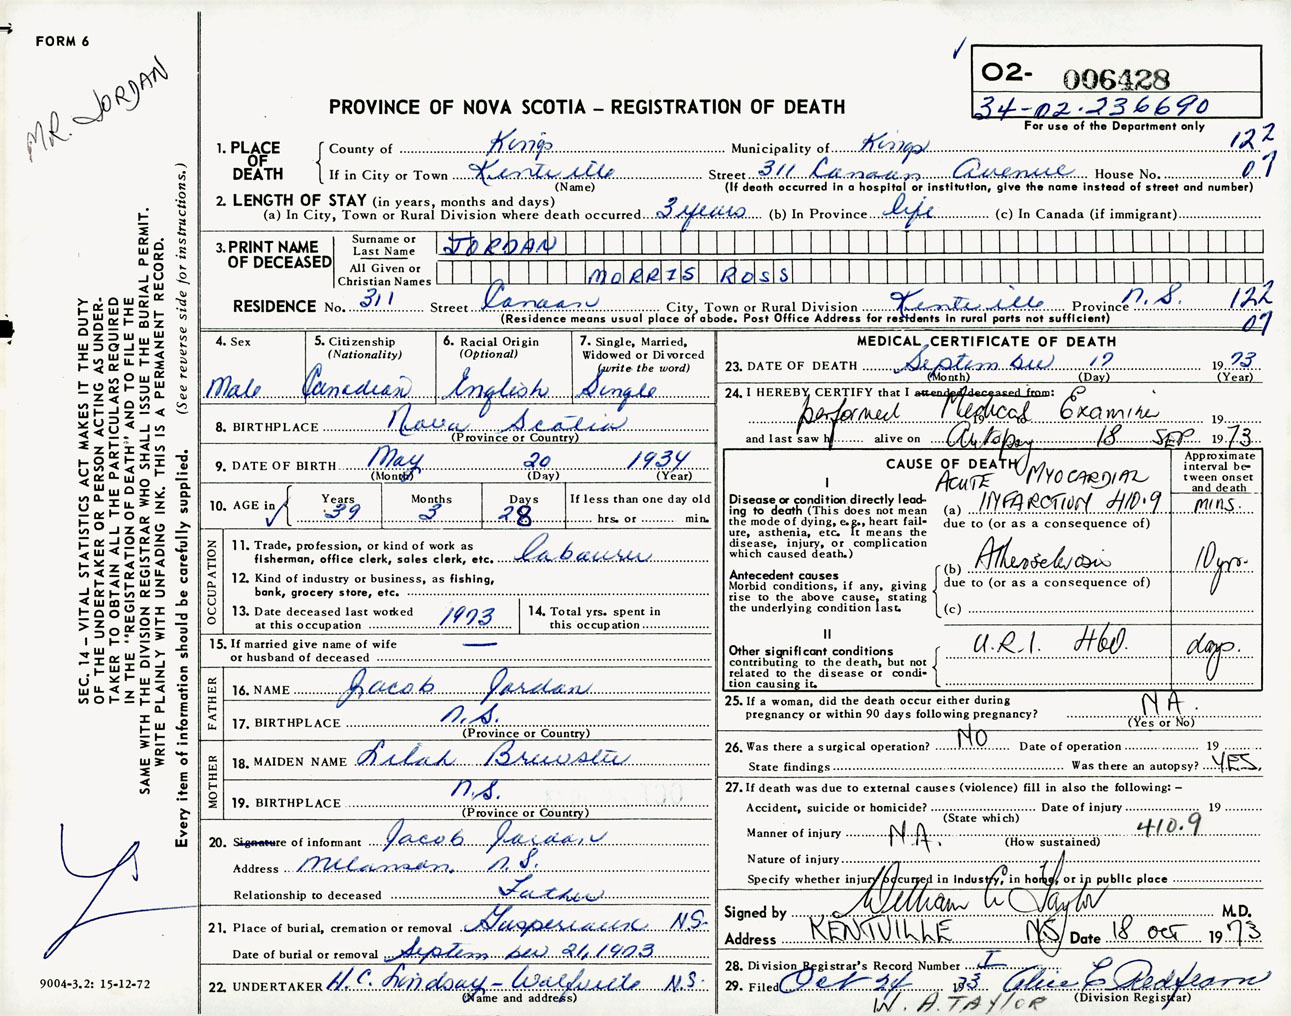 FORM 6
MR. JORDAN
O2- 006428
34-02-236690
For use of the Department only
PROVINCE OF NOVA SCOTIA – REGISTRATION OF DEATH
1. PLACE OF DEATH
County of Kings Municipality of Kings 122
If in City or Town Kentville Street 311 Canaan Avenue House No. 07
(Name) (If death occurred in a hospital or institution, give the name instead of street and number)
2. LENGTH OF STAY (in years, months and days)
(a) In City, Town or Rural Division where death occurred 3 years (b) In Province life (c) In Canada (if immigrant)
3. PRINT NAME OF DECEASED
Surname or Last Name JORDAN
All Given or Christian Names MORRIS ROSS
RESIDENCE No. 311 Street Canaan City, Town or Rural Division Kentville Province N.S. 122
(Residence means usual place of abode. Post Office Address for residents in rural parts not sufficient) 07
4. Sex 5. Citizenship (Nationality) 6. Racial Origin (Optional) 7. Single, Married, Widowed or Divorced (write the word)
Male Canadian English Single
8. BIRTHPLACE Nova Scotia
(Province or Country)
9. DATE OF BIRTH May 20 1934
(Month) (Day) (Year)
10. AGE in Years Months Days If less than one day old
39 3 28 hrs. or min.
OCCUPATION
11. Trade, profession, or kind of work as
fisherman, office clerk, sales clerk, etc. labourer
12. Kind of industry or business, as fishing,
bank, grocery store, etc.
13. Date deceased last worked at this occupation 1973
14. Total yrs. spent in this occupation
15. If married give name of wife
or husband of deceased —
FATHER
16. NAME Jacob Jordan
17. BIRTHPLACE N.S.
(Province or Country)
MOTHER
18. MAIDEN NAME Lilah Brewster
19. BIRTHPLACE N.S.
(Province or Country)
20. Signature of informant Jacob Jordan
Address Melanson, N.S.
Relationship to deceased Father
21. Place of burial, cremation or removal Gaspereaux N.S.
Date of burial or removal September 21, 1973
22. UNDERTAKER H.C. Lindsay – Wolfville N.S.
(Name and address)
MEDICAL CERTIFICATE OF DEATH
23. DATE OF DEATH September 17 1973
(Month) (Day) (Year)
24. I HEREBY CERTIFY that I attended deceased from:
performed Medical Examiner 19
and last saw h alive on Autopsy 18 SEP 1973
CAUSE OF DEATH
Approximate interval between onset and death
I
Disease or condition directly leading to death (This does not mean the mode of dying, e.g., heart failure, asthenia, etc. It means the disease, injury, or complication which caused death.)
ACUTE MYOCARDIAL
(a) INFARCTION 410.9 mins.
due to (or as a consequence of)
Antecedent causes
Morbid conditions, if any, giving rise to the above cause, stating the underlying condition last.
(b) Atherosclerosis 10 yrs.
due to (or as a consequence of)
(c)
II
Other significant conditions
contributing to the death, but not related to the disease or condition causing it.
U.R.I. 460. days.
25. If a woman, did the death occur either during
pregnancy or within 90 days following pregnancy? NA.
(Yes or No)
26. Was there a surgical operation? NO Date of operation 19
State findings Was there an autopsy? YES.
27. If death was due to external causes (violence) fill in also the following: –
Accident, suicide or homicide? Date of injury 19
(State which)
Manner of injury N.A. 410.9
(How sustained)
Nature of injury
Specify whether injury occurred in Industry, in home, or in public place
Signed by William A Taylor M.D.
Address KENTVILLE NS Date 18 OCT 1973
28. Division Registrar's Record Number I
29. Filed Oct 24 1973 Alice E Redfearn
(Division Registrar)
W. A. TAYLOR
SEC. 14 – VITAL STATISTICS ACT MAKES IT THE DUTY
OF THE UNDERTAKER OR PERSON ACTING AS UNDER-
TAKER TO OBTAIN ALL THE PARTICULARS REQUIRED
IN THE "REGISTRATION OF DEATH" AND TO FILE THE
SAME WITH THE DIVISION REGISTRAR WHO SHALL ISSUE THE BURIAL PERMIT.
WRITE PLAINLY WITH UNFADING INK. THIS IS A PERMANENT RECORD.
Every item of information should be carefully supplied. (See reverse side for instructions.)
9004-3.2: 15-12-72